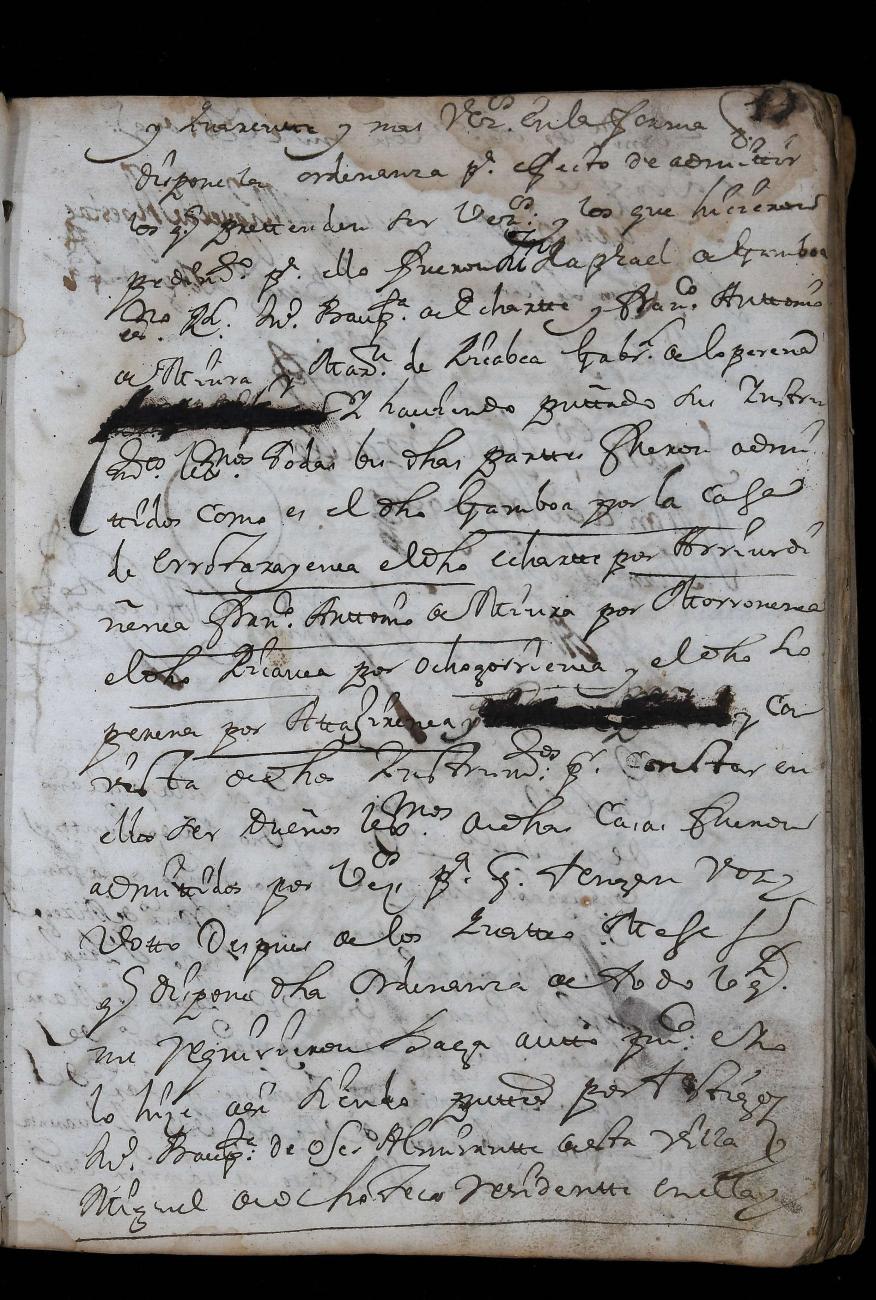 y quarentta y mas Vez.os en la forma
dispone la ordenanza p.a efecto de admittir
los q.e prettenden ser Vez.os y los que hicieron
p.a ello fueron Raphael de Gamboa
Ju.o Baup.ta de Echartte y Fran.co Anttonio
de Miura y Mar.n de Licabea Gabr.l de loperena
Y haviendo puttado sus Instru
m.tos todas las dhas parttes fueron admi
ttidos como es el dho Gamboa por la Casa
de Errotazarena el dho echartte por Arriurdi
ñenea Fran.co Anttonio de Miura por Mottorronenea
el dho Licavea por ochogorrienea y el dho lo
perena por Attazirenea y y Con
vista de dhos Instrum.tos p.r Constar en
ellos ser Dueños de dhas Casas fueron
admittidos por Vez.os p.a q. tengan Voz y
Votto Despues de los quattro Mese s
q.e dispone dha Ordenanza de todo lo q.l
me requirieron haga autto pu.co e Yo
lo hize assi siendo por testigos
Ju.o Baup.ta de oses Almirantte desta villa y
Miguel de ochoteco residentte en ella